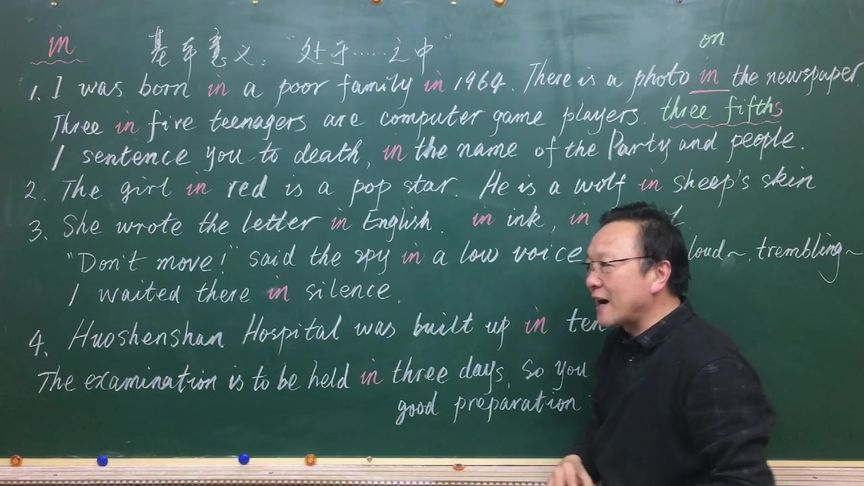 in 基本意义："处于……之中"
on
1. I was born in a poor family in 1964. There is a photo in the newspaper
Three in five teenagers are computer game players. three fifths
I sentence you to death, in the name of the Party and people.
2. The girl in red is a pop star. He is a wolf in sheep's skin
3. She wrote the letter in English. in ink, in
"Don't move!" said the spy in a low voice loud~, trembling~
I waited there in silence.
4. Huoshenshan Hospital was built up in ten
The examination is to be held in three days, so you
good preparation